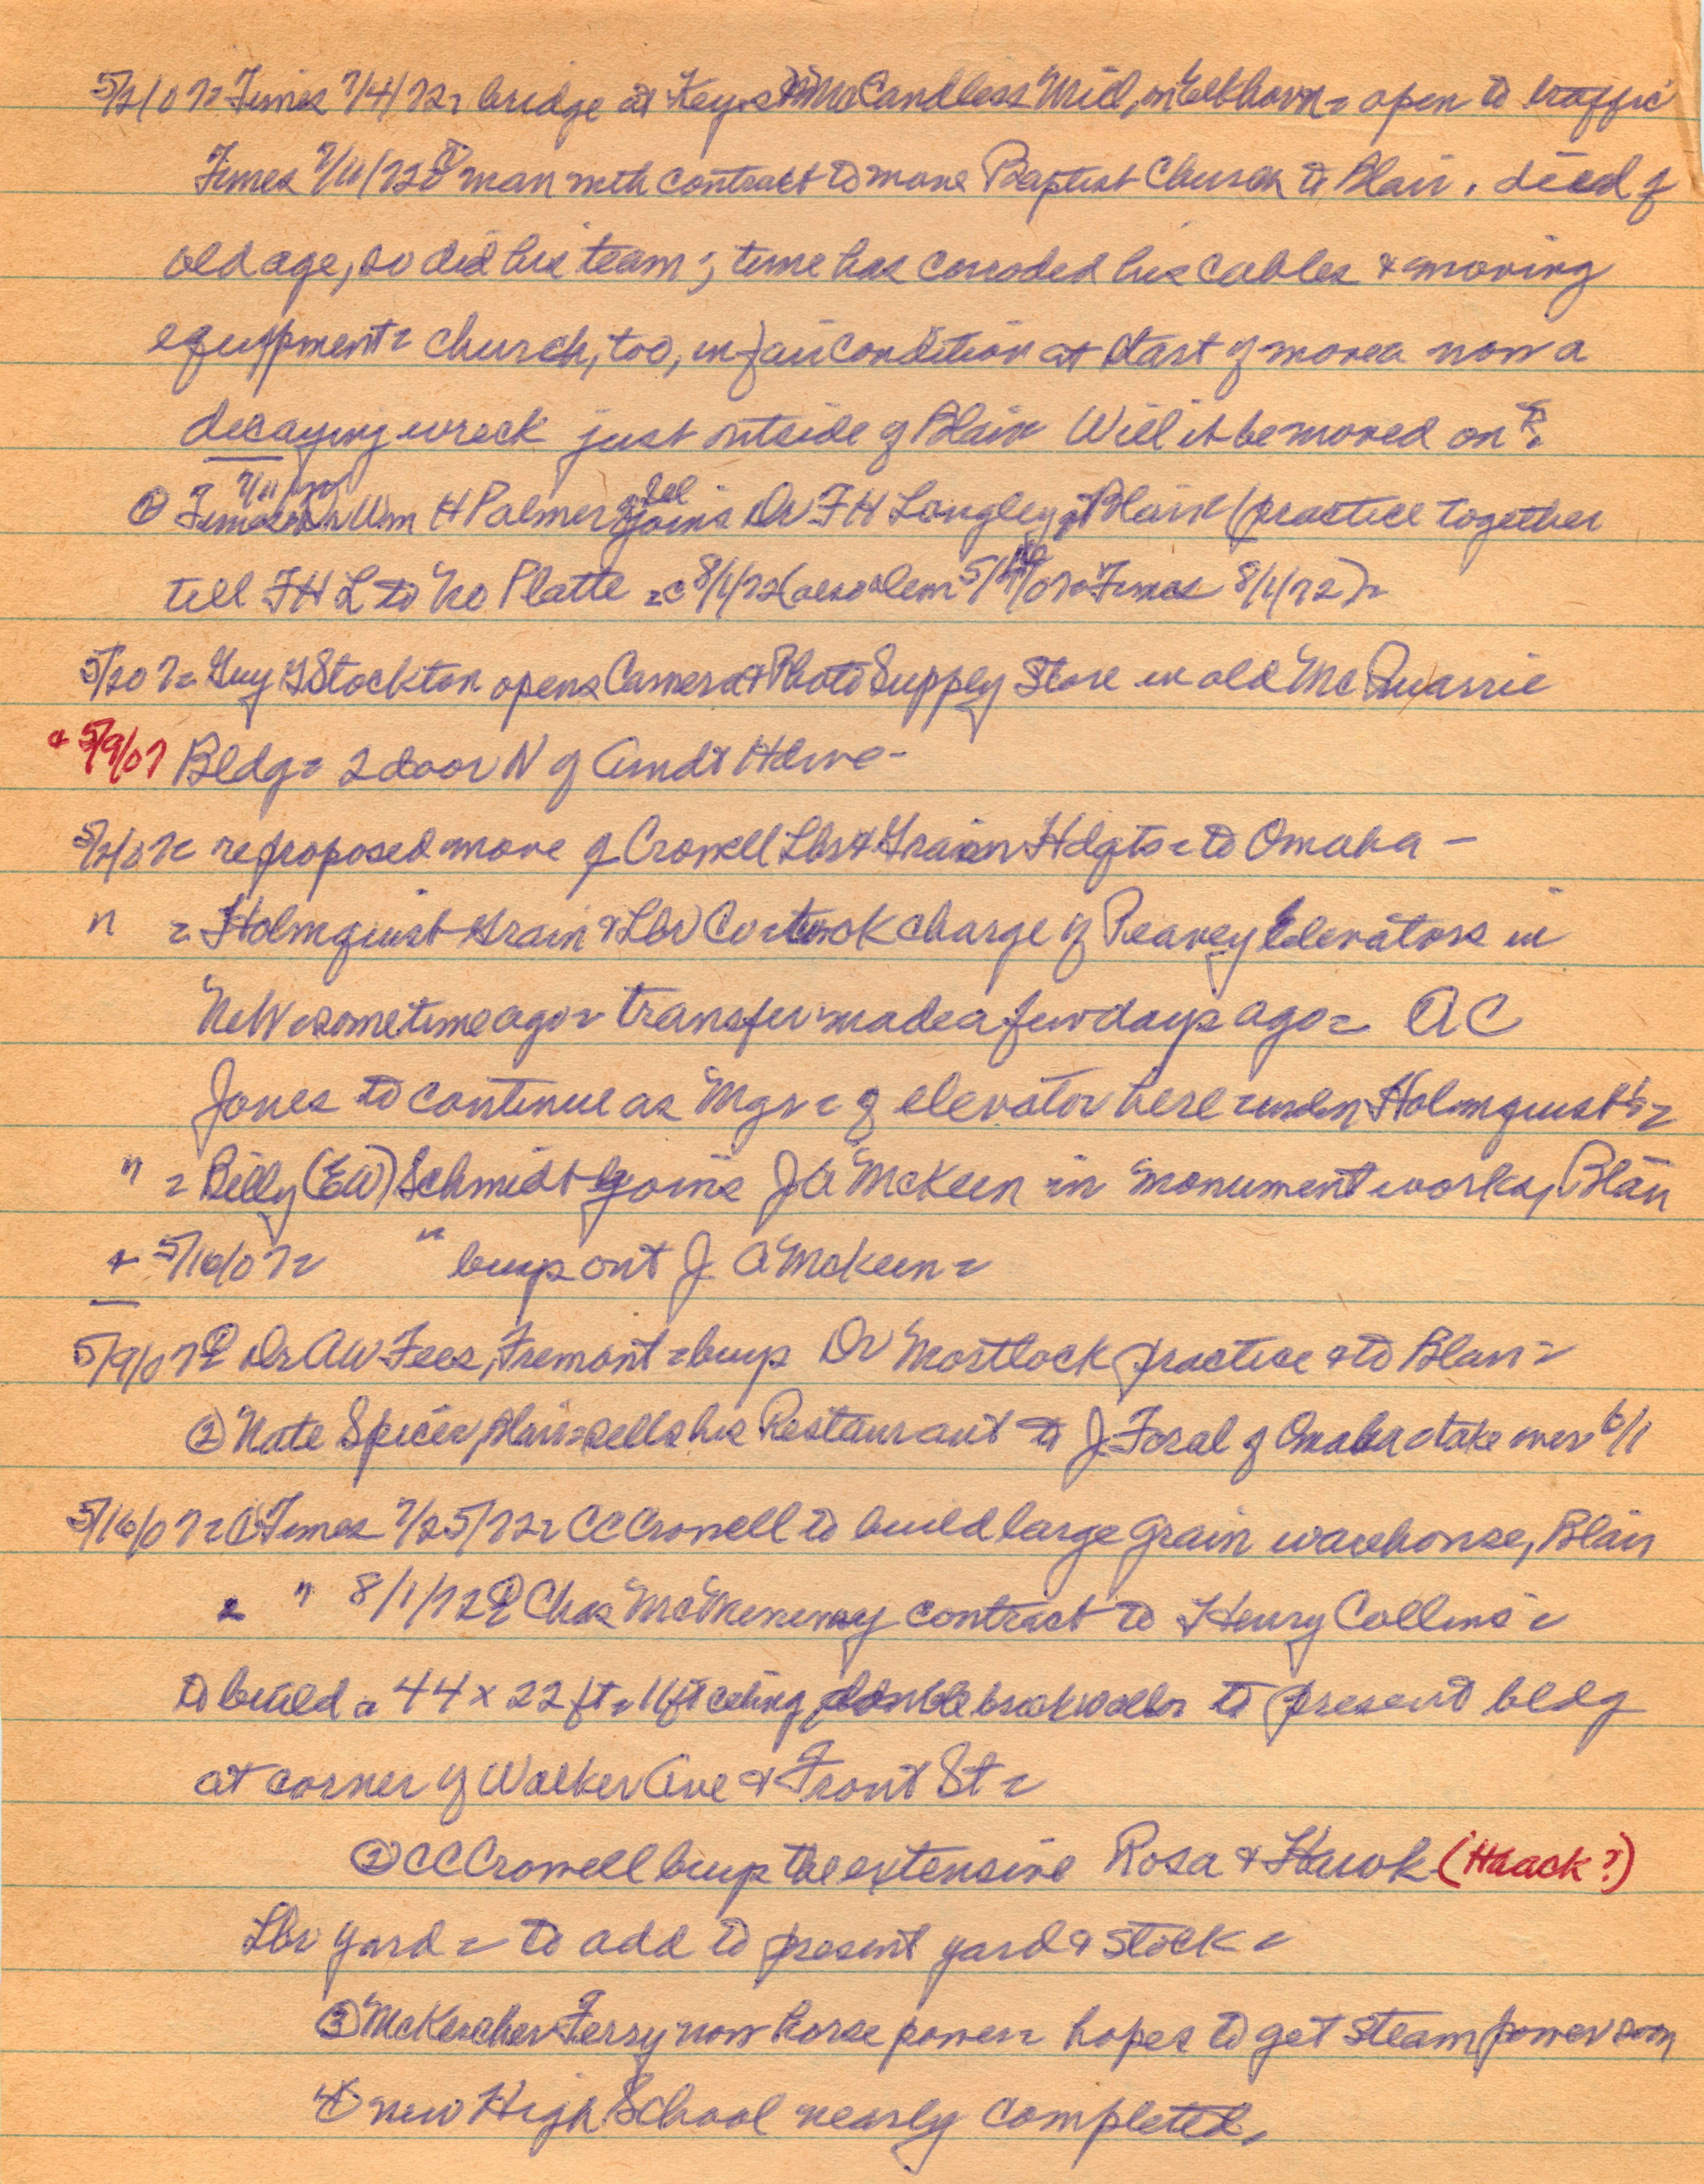 5/2/07= Times 7/4/72= bridge at Keys & McCandless Mill, on Elkhorn = open to traffic
Times 7/11/72 ① man with contract to move Baptist Church to Blair, died of
old age, so did his team; time has corroded his cables & moving
equippment= church, too, in fair condition at start of move= now a
decaying wreck just outside of Blair Will it be moved on?
② Times 7/11/72 Wm H Palmer joins Dr F H Longley, Blair (practice together
till F H L to No Platte =c 8/1/72 (also 5/16/07= Times 8/1/72)=
5/2/07= Guy Stockton opens Camera & Photo Supply Store in old McQuarrie
& 5/9/07 Bldg= 2 door N of Arndt Hdwe-
5/2/07= re proposed move of Crowell Lbr & Grain Hdqts= to Omaha -
" = Holmquist Grain & Lbr Co= took charge of Peavey Elevators in
Neb= sometime ago= transfer made a few days ago= A C
Jones to continue as Mgr= of elevator here under Holmquist's=
" = Billy (EW) Schmidt joins J A McKeen in monument works, Blair
& 5/16/07= " buys out J A McKeen=
5/9/07= ① Dr AW Fees, Fremont= buys Dr Mostlock practice & to Blair=
② Nate Spicer, Blair= sells his Restaurant to J Foral of Omaha take over 6/1
5/16/07= ① Times 7/25/72= CC Crowell to build large grain warehouse, Blair
" 8/1/72 ① Chas McMenemey contract to Henry Collins=
to build a 44 x 22 ft= 11 ft ceiling, double brick walls= to present bldg
at corner of Walker Ave & Front St=
② CC Crowell buys the extensive Rosa & Hawk (Haack?)
Lbr yard= to add to present yard & stock=
③ McKercher Ferry now horse power= hopes to get steam power soon
④ new High School nearly completed.